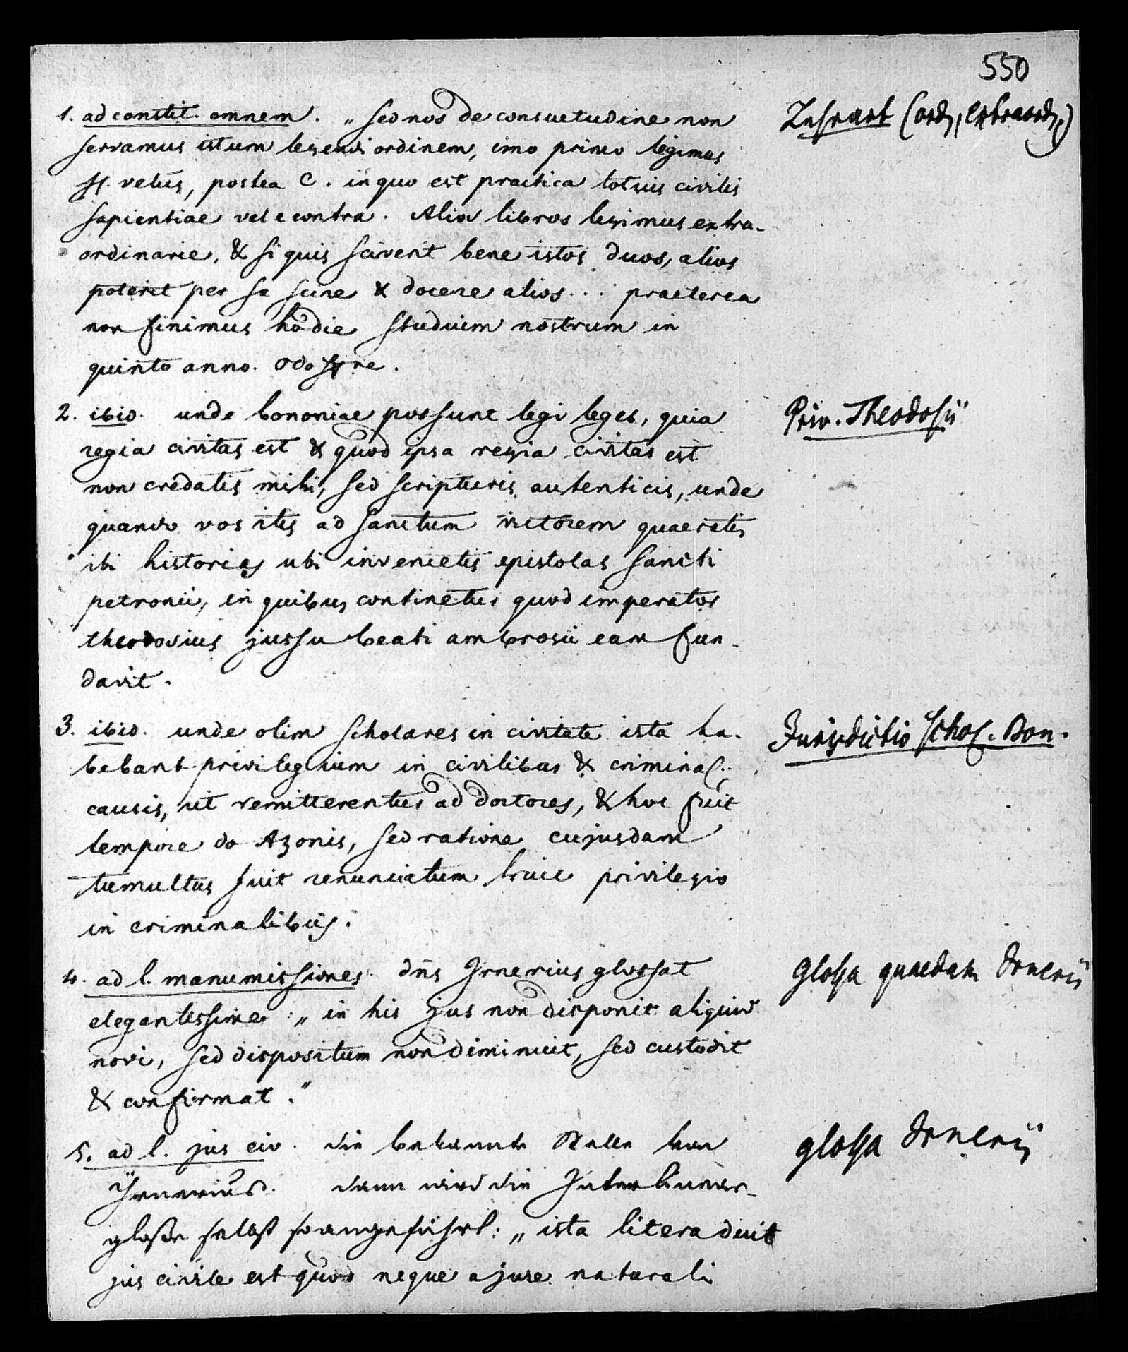 550
1. ad constit. omnem. „sed nos de consuetudine non
servamus istum legendi ordinem, imo primo legimus
ff. vetus, postea C. in quo est practica totius civilis
sapientiae vel e contra. Alios libros legimus extra-
ordinarie, & si quis sciverit bene istos duos, alios
poterit per se scire & docere alios... praeterea
non finimus hodie studium nostrum in
quinto anno. Odoffre.
Lehrart (ord., extraord.)
2. ibid. unde bononiae possunt legi leges, quia
regia civitas est & quod ipsa regia civitas est
non credatis mihi, sed scripturis autenticis, unde
quando vos itis ad sanctum victorem quaeratis
ibi historias ubi invenietis epistolas sancti
petronii, in quibus continetur quod imperator
theodosius jussu beati ambrosii eam fun-
davit.
Priv. Theodosii
3. ibid. unde olim scholares in civitate ista ha-
bebant privilegium in civilibus & criminal.
causis, ut remitterentur ad doctores, & hoc fuit
tempore do Azonis, sed ratione cujusdam
tumultus fuit renunciatum huic privilegio
in criminalibus.
Jurisdictio schol. Bon.
4. ad l. manumissiones. dns Irnerius glossat
elegantissime: „in his jus non disponit aliquid
novi, sed dispositum non diminuit, sed custodit
& confirmat."
Glossa quaedam Irnerii
5. ad l. jus civ. die bekannte Stelle von
Yrnerius. dann wird die Interlinear-
glosse selbst so angeführt: „ista litera dicit
jus civile est quod neque a jure naturali
glossa Irnerii